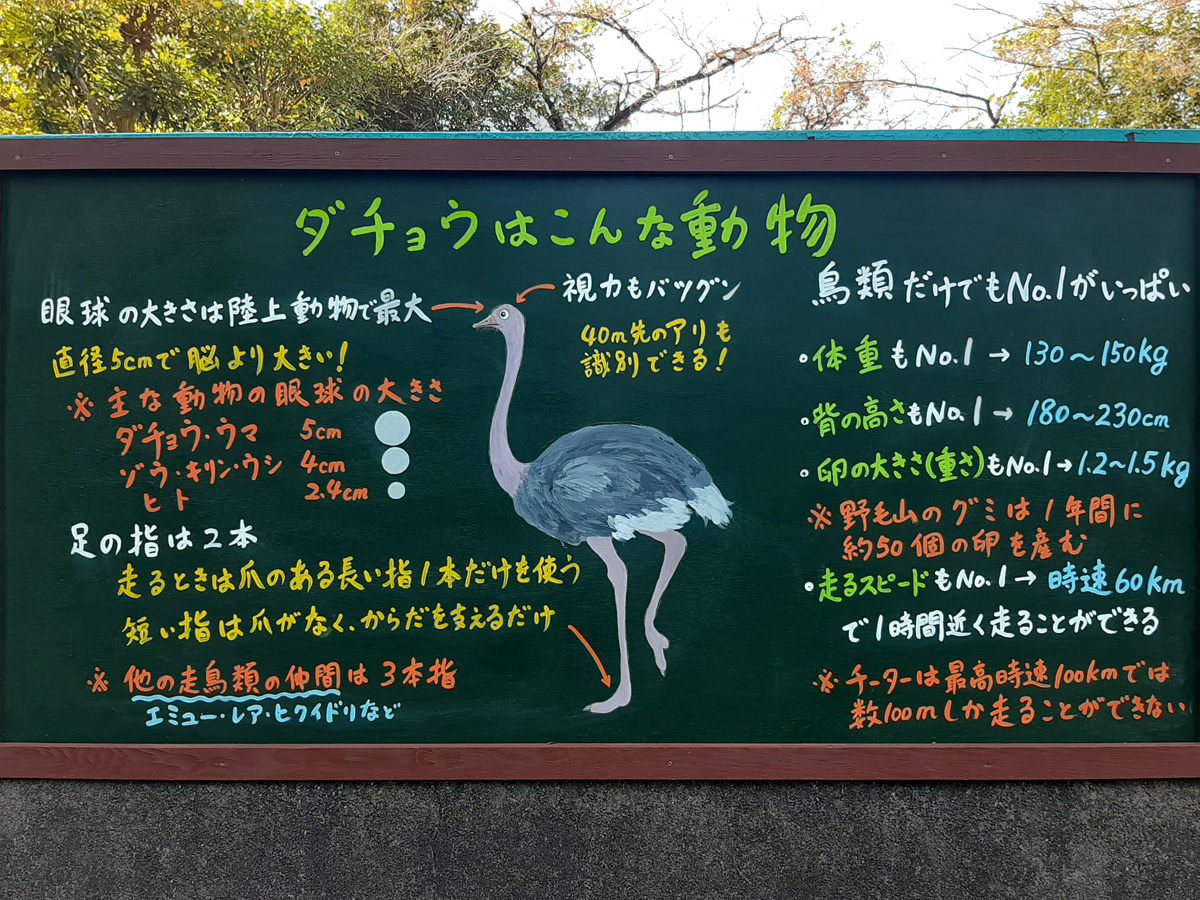 ダチョウはこんな動物
眼球の大きさは陸上動物で最大
直径5cmで脳より大きい!
※主な動物の眼球の大きさ
ダチョウ・ウマ 5cm
ゾウ・キリン・ウシ 4cm
ヒト 2.4cm
足の指は2本
走るときは爪のある長い指1本だけを使う
短い指は爪がなく、からだを支えるだけ
※他の走鳥類の仲間は3本指
エミュー・レア・ヒクイドリなど
視力もバツグン
40m先のアリも
識別できる!
鳥類だけでもNo.1がいっぱい
・体重もNo.1→130〜150kg
・背の高さもNo.1→180〜230cm
・卵の大きさ(重さ)もNo.1→1.2〜1.5kg
※野毛山のグミは1年間に
約50個の卵を産む
・走るスピードもNo.1→時速60km
で1時間近く走ることができる
※チーターは最高時速100kmでは
数100mしか走ることができない